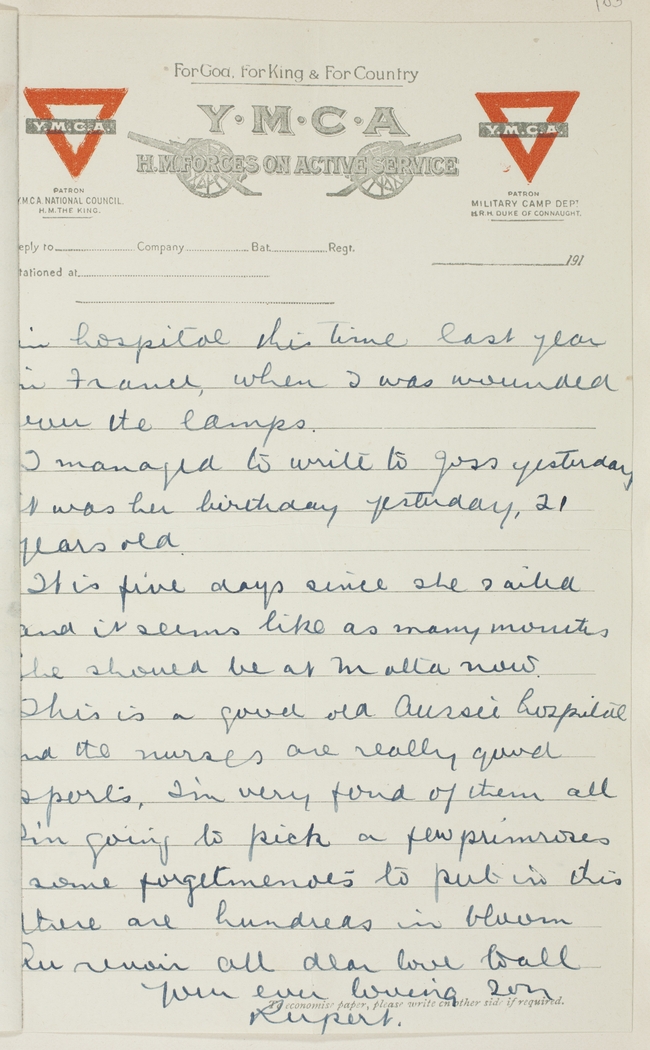 For God, For King & For Country
Y·M·C·A
H.M. FORCES ON ACTIVE SERVICE
Y.M.C.A.
PATRON
Y.M.C.A. NATIONAL COUNCIL.
H.M. THE KING.
Y.M.C.A.
PATRON
MILITARY CAMP DEPT
H.R.H. DUKE OF CONNAUGHT.
eply to Company Bat. Regt.
191
tationed at
in hospital this time last year
in France, when I was wounded
the lamps.
I managed to write to Joss yesterday
it was her birthday yesterday, 21
years old.
It is five days since she sailed
and it seems like as many months
she should be at Malta now.
This is a good old Aussie hospital
and the nurses are really good
sports, I'm very fond of them all
I'm going to pick a few primroses
some forgetmenots to put in this
there are hundreds in bloom
Au revoir all dear love to all
Your ever loving son
To economise paper, please write on other side if required.
Rupert.